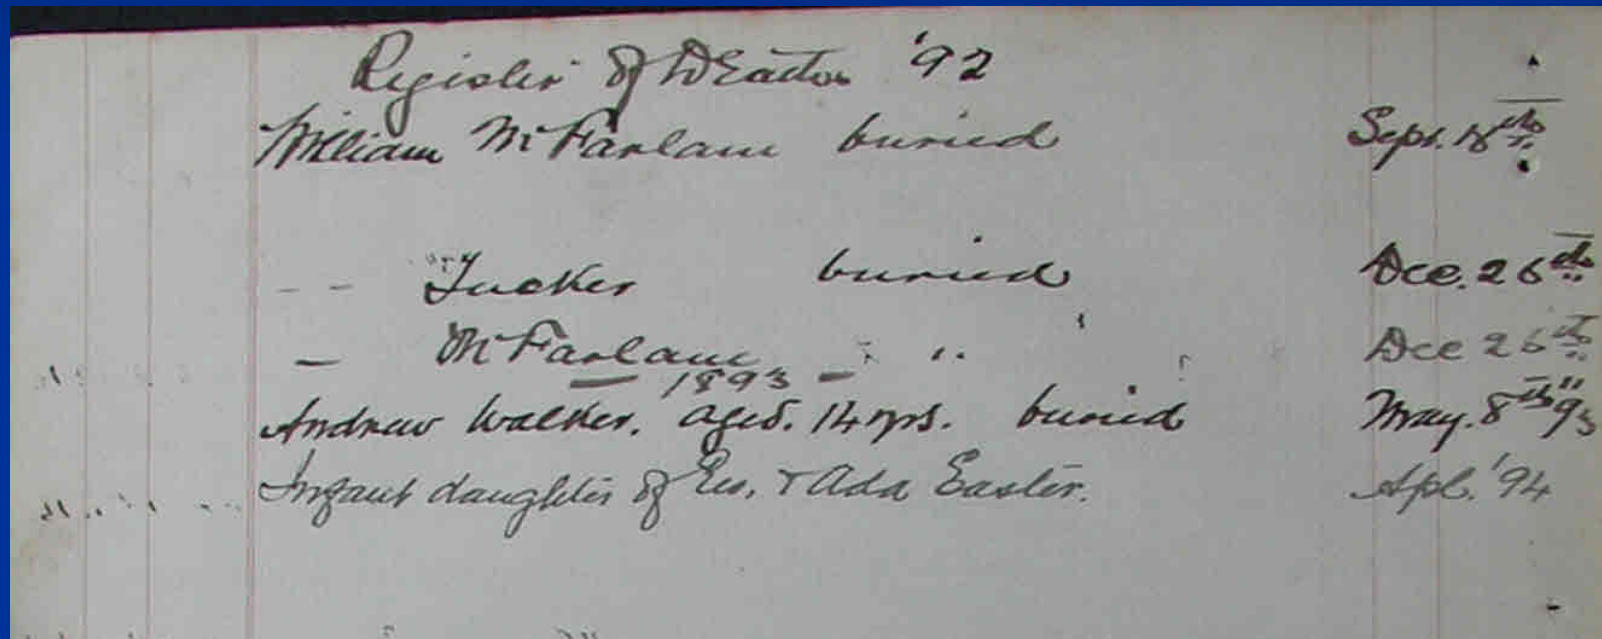 Register of Deaths '92
William McFarlane buried Sept. 18th
– – Tucker buried Dec. 26th
– McFarlane – " " Dec 26th
– 1893 –
Andrew Walker. aged. 14 yrs. buried May. 8th '93
Infant daughter of Geo. & Ada Easter. Apl. '94